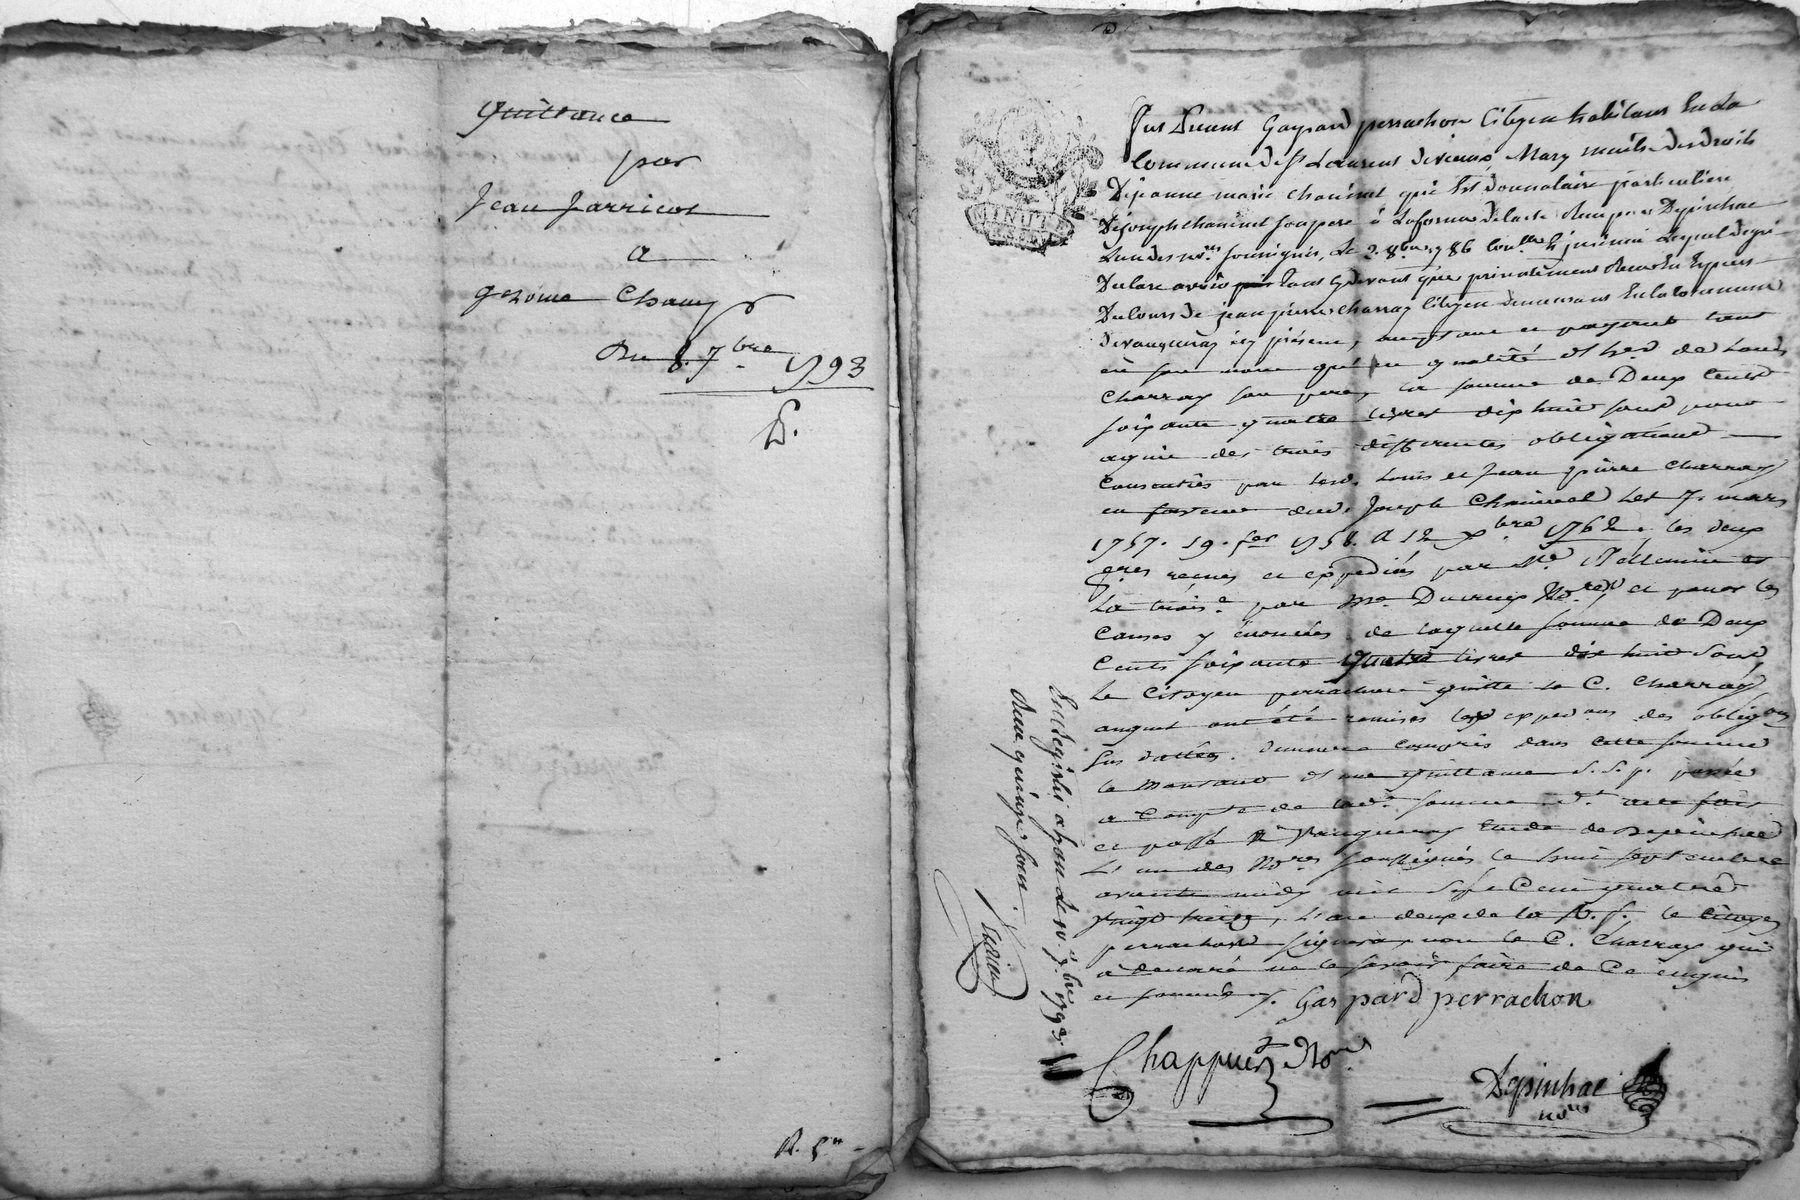 Quittance
par
Jean Jarricot
a
Gerome Chany
Du 8. 7bre 1793
D.
R. 5#
MINUTE
Fut Present Gaspard perrachon Citoyen habitant En La
Commune de St Laurent de vaux Mary maitre des droits
De jeanne marie Chauinet qui Est Donnataire particuliere
De joseph Chauinet son pere à La forme de lacte Reçu par Depinhac
Lun des nores soussignés, Le 2. 8bre 1786 Lequel de gré
Declare avoir tant Cy devant que presentement Reçu En Especes
Du Cours de jean pierre Charray Citoyen demeurant En la Commune
De vaugneray icy présent, acceptant et payant tant
en son nom qu'en qualité d'her. de Louis
Charray son pere, la somme de Deux Cents
soixante quatre livres dix huit sous pour
des trois differentes obligations
Consenties par lesd. Louis et Jean pierre Charray
en faveur dud. Joseph Chauinet les 7. mars
1757. 19. fer 1758. & 12 xbre 1762. les deux
eres reçues et expediées par Me
La trois.e par Me. Ducreux Nores, et pour les
Causes y énoncées. de laquelle somme de Deux
Cents soixante quatre livres dix huit Sous,
Le Citoyen perrachon quitte le C. Charray
auquel ont été remises les expedons des obligons
sus dattées. demeure compris dans cette somme
le montant d'une quittance S. S. p.
a Compte de lad. somme. dt. acte fait
et passé à Vaugneray Etude de Depinhac
L'un des Nores soussignés le huit septembre
avant midy mil Sept Cent quatre
vingt treize, L'an deux de la R. f., le Citoyen
perrachon signera, non le C. Charray qui
a declaré ne le savoir faire de Ce enquis
et sommé /.
Gaspard perrachon
Chappuis Nore.
Depinhac
nore
Enregistré a le 10. 7bre 1793.
Reçu quinze sous.